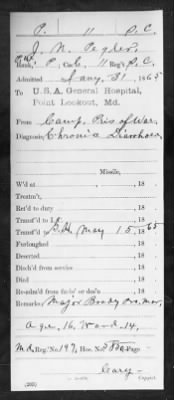 P. 11 S.C.
J. N. Pegler
Rank, P Co. 11 Reg't S.C.
Admitted Jany. 31, 1865
To U.S.A. General Hospital,
Point Lookout, Md.
From Camp, Pris of War
Diagnosis, Chronic Diarrhoea
Missile,
W'd at , 18
Treatm't,
Ret'd to duty , 18
Transf'd to , 18
Transf'd May 15, 1865
Furloughed , 18
Deserted , 18
Disch'd from service , 18
Died , 18
Re-adm'd from fur'lo' or des'n , 18
Remarks:
Age, 16, Ward 14,
Md. Reg. No. 197, Hos. No. Page
Copyist.